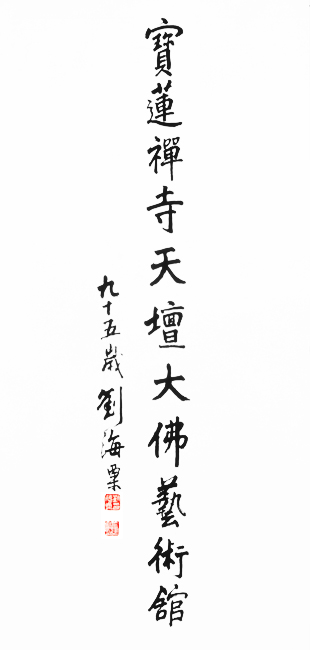 寶蓮禪寺天壇大佛藝術舘
九十五歲劉海粟